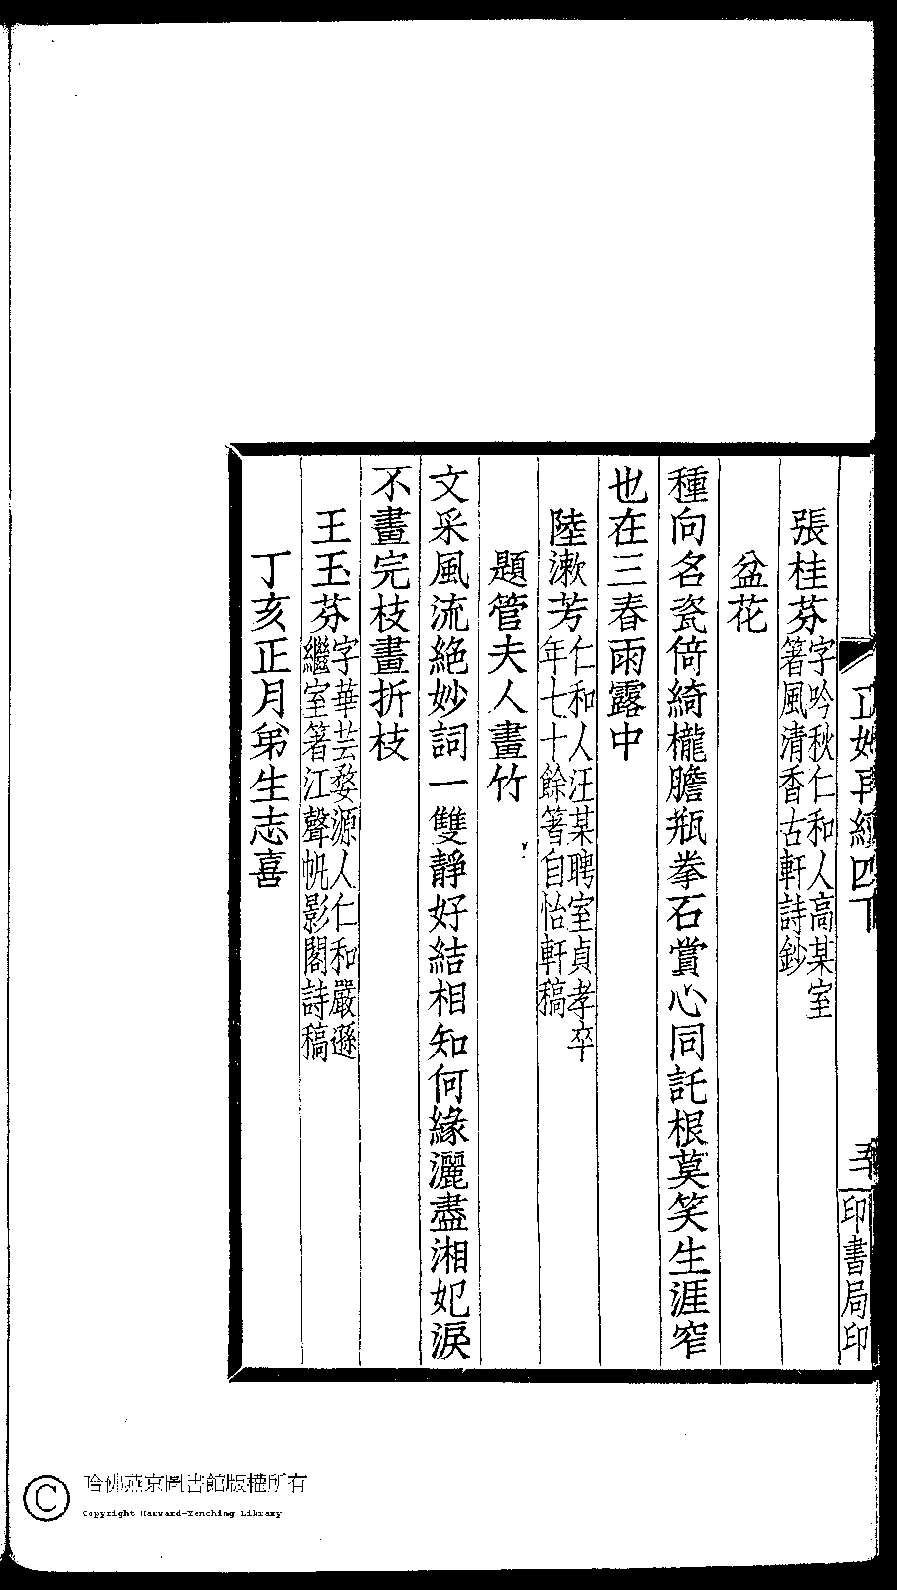 張桂芬字吟秋仁和人高某室
箸風清香古軒詩鈔
盆花
種向名瓷倚綺櫳膽瓶拳石賞心同託根莫笑生涯窄
也在三春雨露中
陸漱芳仁和人汪某聘室貞孝卒
年七十餘箸自怡軒稿
題管夫人畫竹
文采風流絕妙詞一雙靜好結相知何緣灑盡湘妃淚
不畫完枝畫折枝
王玉芬字華芸婺源人仁和嚴遜
繼室箸江聲帆影閣詩稿
丁亥正月弟生志喜
印書局印
哈佛燕京圖書館版權所有
Copyright Harvard-Yenching Library